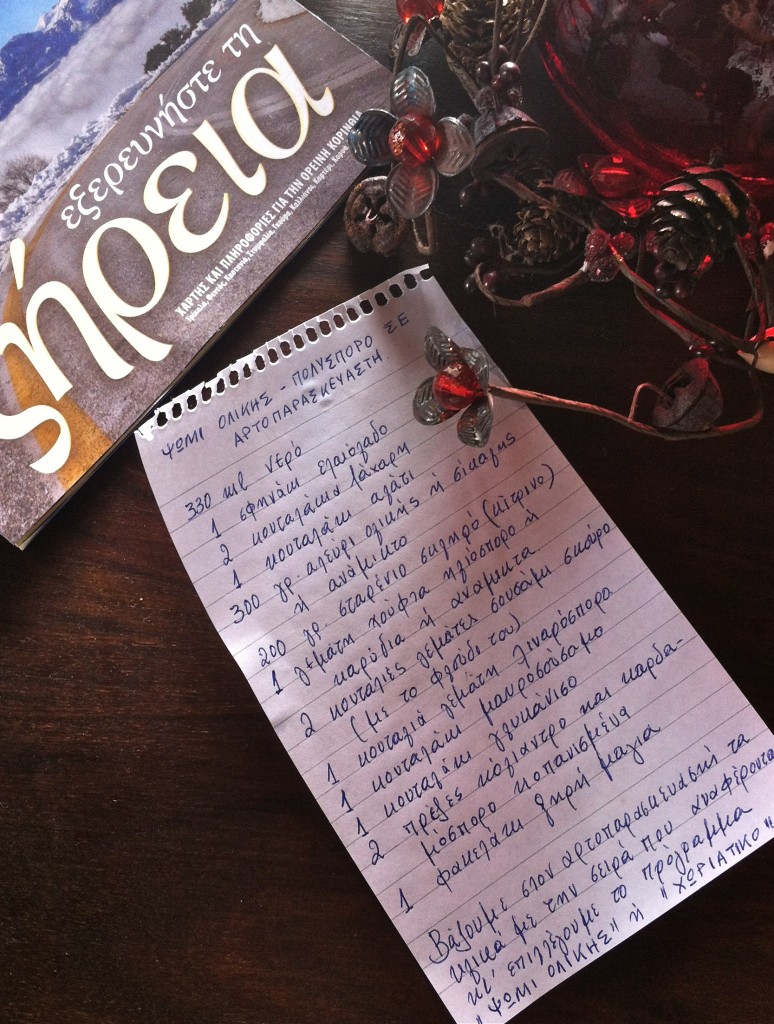 εξερευνήστε τη
ήρεια
ΧΑΡΤΗΣ ΚΑΙ ΠΛΗΡΟΦΟΡΙΕΣ ΓΙΑ ΤΗΝ ΟΡΕΙΝΗ ΚΟΡΙΝΘΙΑ
ΨΩΜΙ ΟΛΙΚΗΣ - ΠΟΛΥΣΠΟΡΟ ΣΕ
ΑΡΤΟΠΑΡΑΣΚΕΥΑΣΤΗ
330 ml νερό
1 σφηνάκι ελαιόλαδο
2 κουταλάκια ζάχαρη
1 κουταλάκι αλάτι
300 γρ. αλεύρι ολικής ή σίκαλης
ή ανάμικτο
200 γρ. σταρένιο σκληρό (κίτρινο)
1 γεμάτη χούφτα ηλιόσπορο ή
καρύδια ή ανάμικτα
2 κουταλιές γεμάτες σουσάμι σκούρο
(με το φλούδι του)
1 κουταλιά γεμάτη λιναρόσπορα
1 κουταλάκι μαυροσούσαμο
1 κουταλάκι γλυκάνισο
2 πρέζες κόλιαντρο και καρδα-
μόσπορο κοπανισμένα
1 φακελάκι ξηρή μαγιά
Βάζουμε στον αρτοπαρασκευαστή τα
υλικα με την σειρά που αναφέρονται
κι' επιλέγουμε το πρόγραμμα
"ΨΩΜΙ ΟΛΙΚΗΣ" ή "ΧΩΡΙΑΤΙΚΟ"